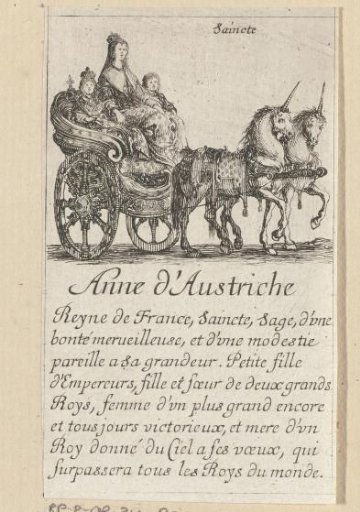 Saincte
Anne d'Austriche
Reyne de France, Saincte, Sage, d'vne
bonté merueilleuse, et d'vne modestie
pareille a Sa grandeur. Petite fille
d'Empereurs, fille et sœur de deux grands
Roys, femme d'vn plus grand encore
et tousjours victorieux, et mere d'vn
Roy donné du Ciel a ses vœux, qui
surpassera tous les Roys du monde.